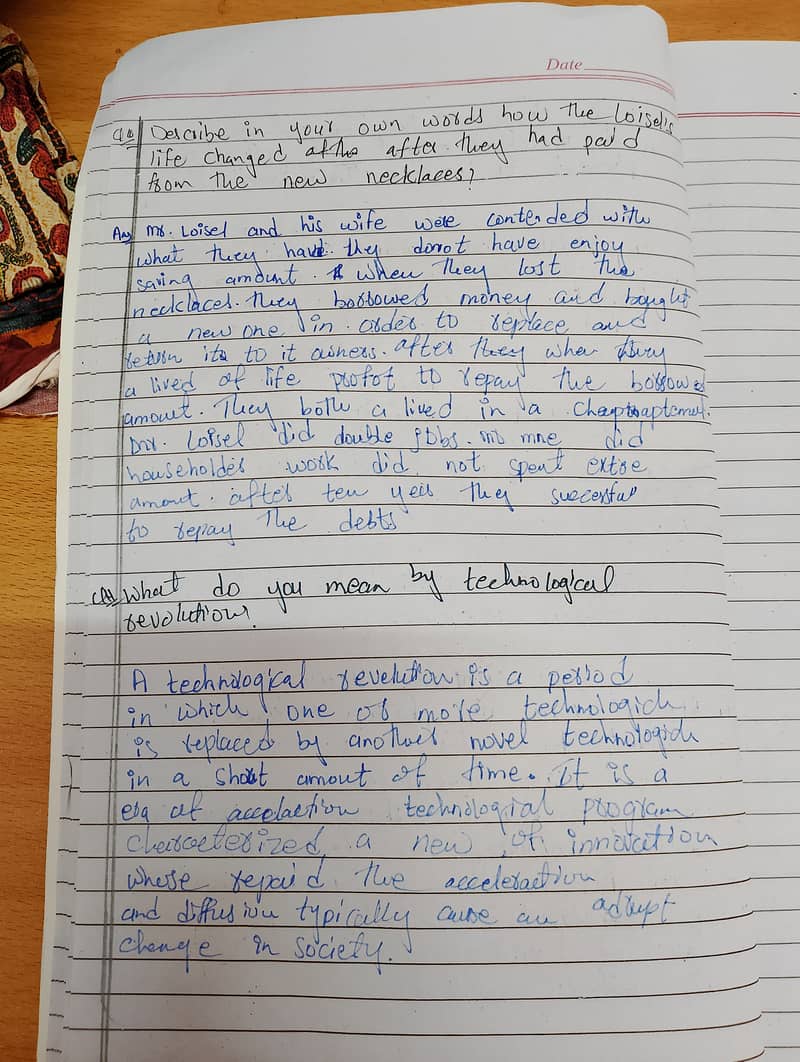 Date
Q4 Describe in your own words how the Loisel's
life changed after they had paid
from the new necklaces?
Ans Mr. Loisel and his wife were contended with
what they have. they donot have enjoy
saving amount. when they lost the
necklaces. They borrowed money and bought
a new one in order to replace and
return its to it owners. after they when they
a lived of life profot to repay the borrowed
amount. They both a lived in a
Mr. Loisel did double jobs. mne did
householder work did not spent extre
amount. after ten yeis they succesful
to repay the debts
What do you mean by technological
revolution?
A technological revelution is a period
in which one or more technologich
is replaced by another novel technologich
in a short amout of time. It is a
era of accelaction technological program
characterized a new of innovation
whose repaid the acceleraction
and diffusion typically cause an adrupt
change in society.